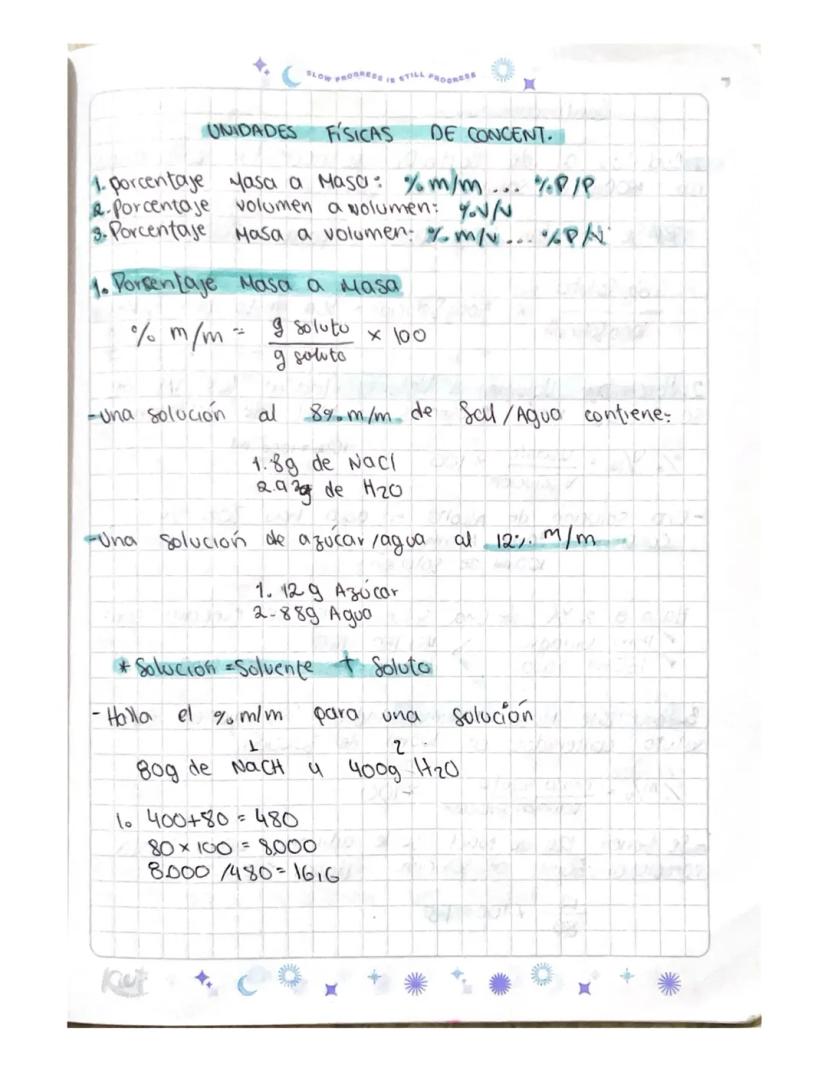 SLOW PROGRESS IS STILL PROGRESS
UNIDADES FÍSICAS DE CONCENT.
1. porcentaje Masa a Masa: % m/m ... % P/P
2. Porcentaje volumen a volumen: % V/V
3. Porcentaje Masa a volumen: % m/v ... % P/V
1. Porsentaje Masa a Masa
% m/m = g soluto / g soluto × 100
- una solución al 8% m/m de Sal/Agua contiene:
1. 8g de NaCl
2. 92g de H2O
- Una solución de azúcar/agua al 12% m/m
1. 12g Azúcar
2- 88g Agua
* Solución = Solvente + Soluto
- Halla el % m/m para una solución
1 2
80g de NaCH y 400g H2O
1. 400+80 = 480
80 × 100 = 8000
8000 / 480 = 16,6